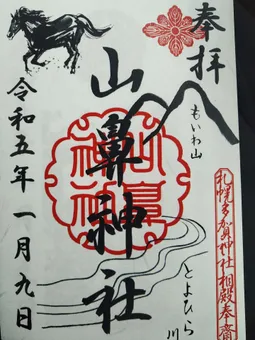 奉拝
もいわ山
山鼻神社
とよひら川
令和五年一月九日
札幌多賀神社相殿奉斎